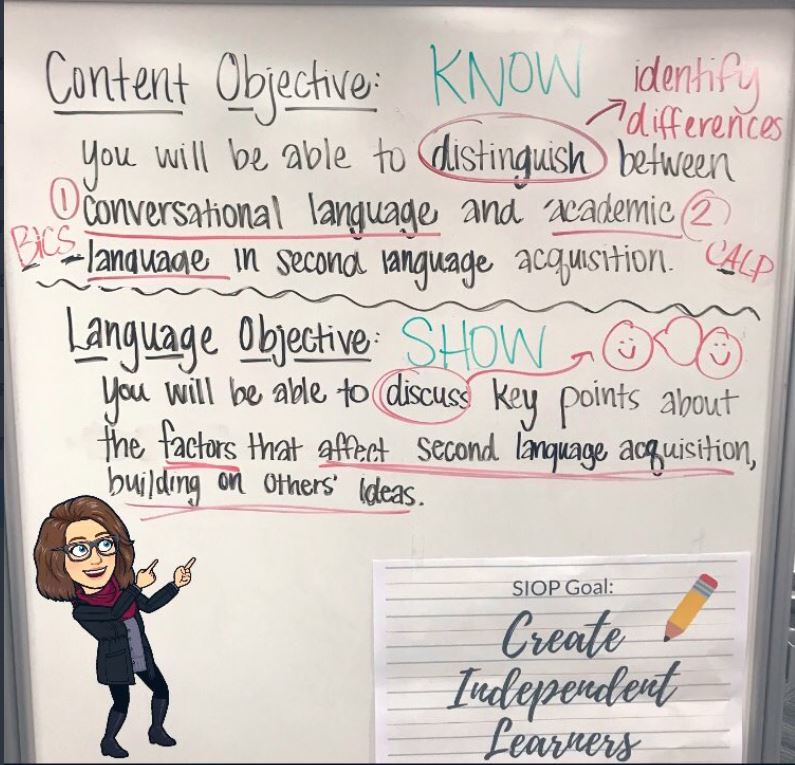 Content Objective: KNOW identify
differences
you will be able to distinguish between
① conversational language and academic ②
BICS - language in second language acquisition. CALP
Language Objective: SHOW
You will be able to discuss key points about
the factors that affect second language acquisition,
building on others' ideas.
SIOP Goal:
Create
Independent
Learners